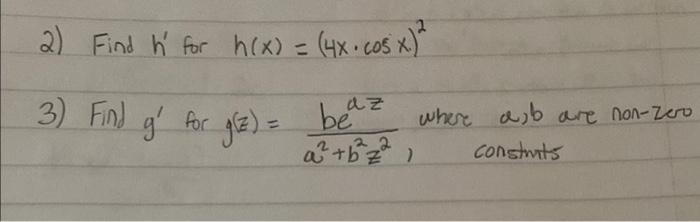 2) Find h' for h(x) = (4x · cos x)²
3) Find g' for g(z) = be^{az} / (a² + b²z²), where a,b are non-zero
constants